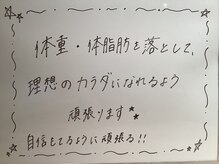 体重・体脂肪を落として、
理想のカラダになれるよう
頑張ります
自信もてるように頑張る!!